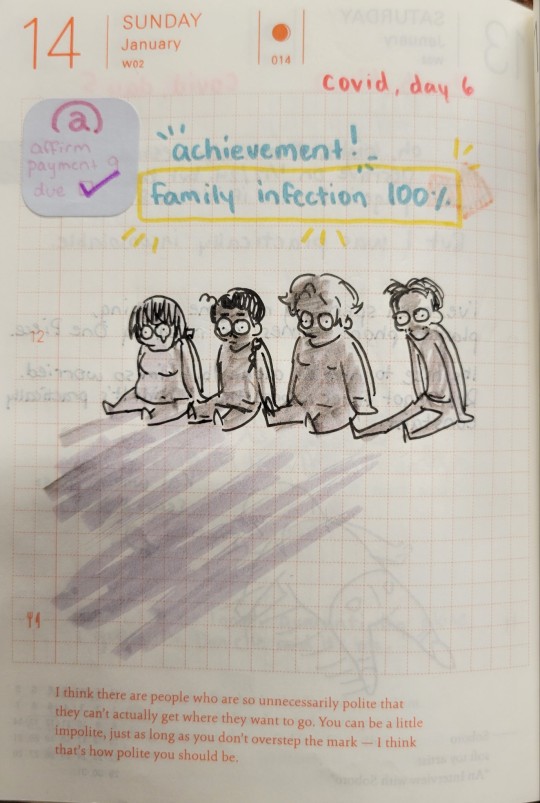 14
SUNDAY
January
W02
014
covid, day 6
a
affirm
payment
due
achievement!
family infection 100%
12
I think there are people who are so unnecessarily polite that
they can't actually get where they want to go. You can be a little
impolite, just as long as you don't overstep the mark — I think
that's how polite you should be.